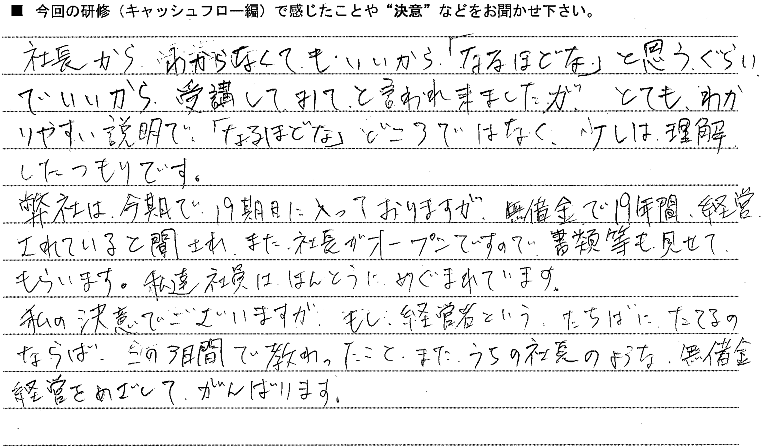 ■ 今回の研修（キャッシュフロー編）で感じたことや“決意”などをお聞かせ下さい。
社長から、わからなくても、いいから、「なるほどな」と思うぐらい
でいいから、受講してみてと言われ来ましたが、とても、わか
りやすい説明で、「なるほどな」どころではなく、少しは、理解
したつもりです。
弊社は、今期で、19期目に入っておりますが、無借金で19年間、経営
されていると聞され、また、社長がオープンですので、書類等も見せて
もらいます。私達社員は、ほんとうに、めぐまれています。
私の決意でございますが、もし、経営者という、たちばに、たてるの
ならば、この3日間で教わったこと、また、うちの社長のような、無借金
経営をめざして、がんばります。